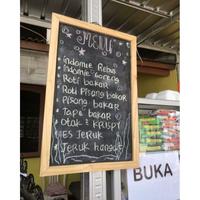 MENU
• Indomie Rebus
• Indomie Goreng
• Roti bakar
• Roti Pisang bakar
• Pisang bakar
• Tape bakar
• Otak² KRISPY
• ES JERUK
• JERUK hangat
BUKA